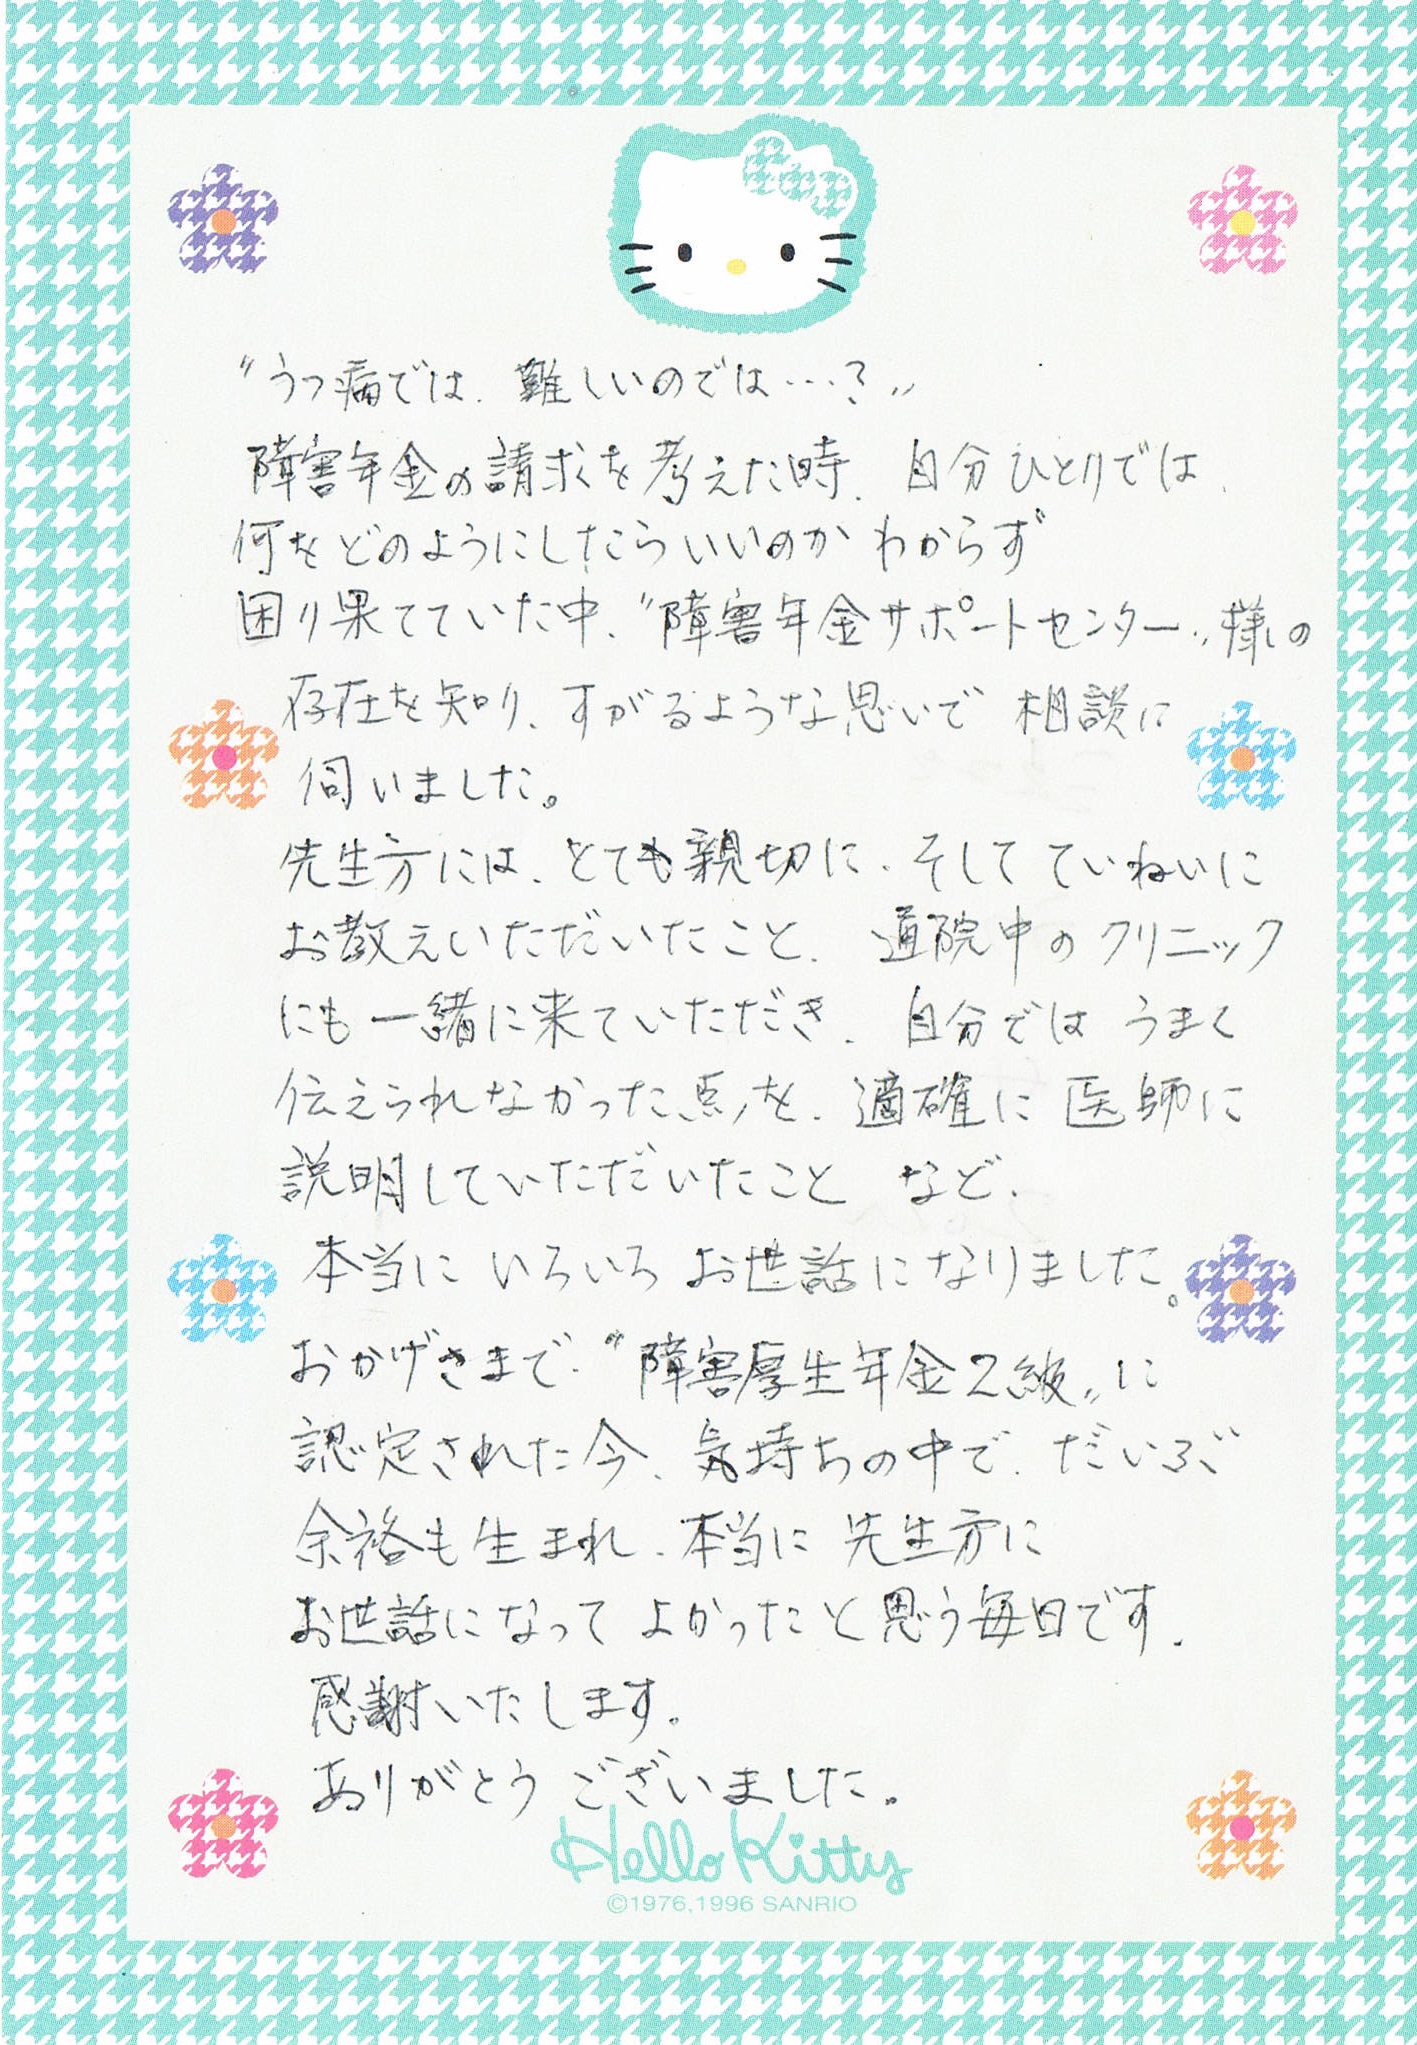 〝うつ病では、難しいのでは…？〟
障害年金の請求を考えた時、自分ひとりでは、
何をどのようにしたらいいのか わからず
困り果てていた中、〝障害年金サポートセンター〟様の
存在を知り、すがるような思いで 相談に
伺いました。
先生方には、とても親切に、そして ていねいに
お教えいただいたこと、通院中のクリニック
にも一緒に来ていただき、自分では うまく
伝えられなかった点を、適確に 医師に
説明していただいたこと など、
本当に いろいろ お世話になりました。
おかげさまで、〝障害厚生年金2級〟に
認定された今、気持ちの中で、だいぶ
余裕も生まれ、本当に 先生方に
お世話になって よかったと思う毎日です。
感謝いたします。
ありがとう ございました。
Hello Kitty
©1976,1996 SANRIO